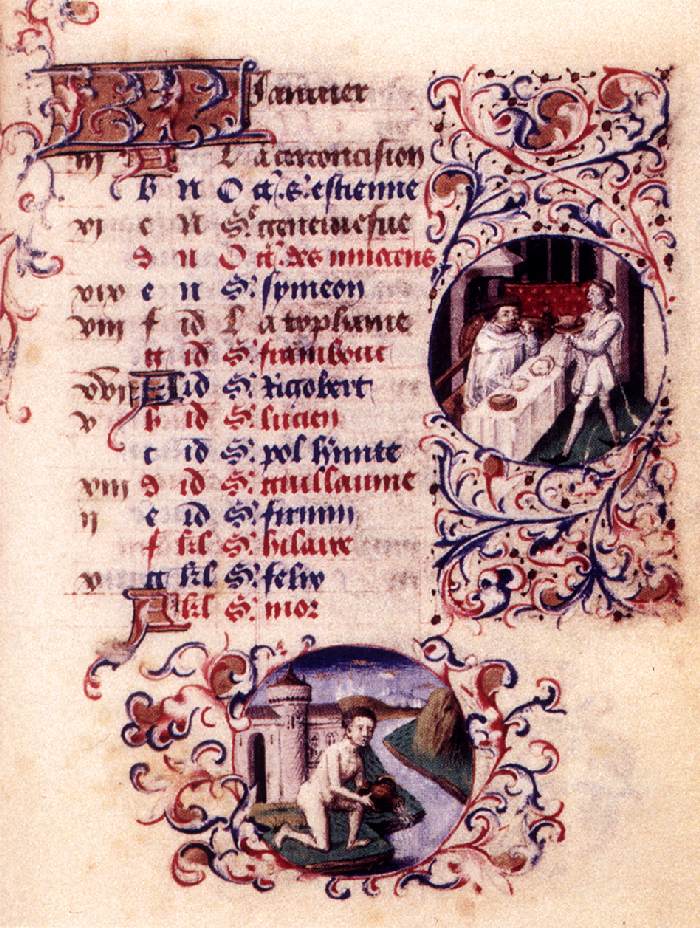 KL Januier
iii A La circoncision
b N Oct. s. estienne
xi c N Sᵉ geneuiefue
d N Oct. des innocens
xix e N S. symeon
viii f id La typhaine
g id S. frambout
xvi A id S. Rigobert
v b id S. lucien
c id S. pol
xiii d id S. guillaume
ii e id S. firmin
f kl S. hilaire
g kl S. felix
A kl S. mor